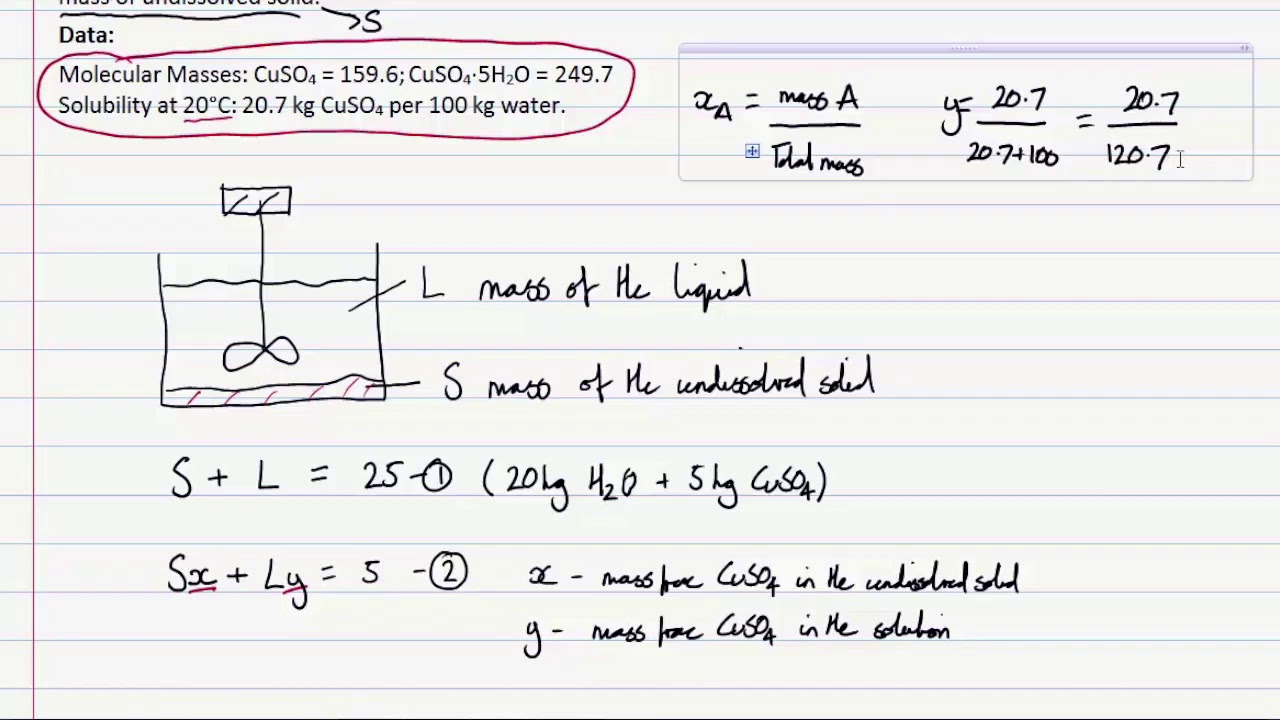 mass of undissolved solid.
S
Data:
Molecular Masses: CuSO₄ = 159.6; CuSO₄·5H₂O = 249.7
Solubility at 20°C: 20.7 kg CuSO₄ per 100 kg water.
x_A = mass A / Total mass
y = 20.7 / 20.7+100 = 20.7 / 120.7
L mass of the liquid
S mass of the undissolved solid
S + L = 25 -① (20kg H₂O + 5kg CuSO₄)
Sx + Ly = 5 -②
x - mass frac CuSO₄ in the undissolved solid
y - mass frac CuSO₄ in the solution